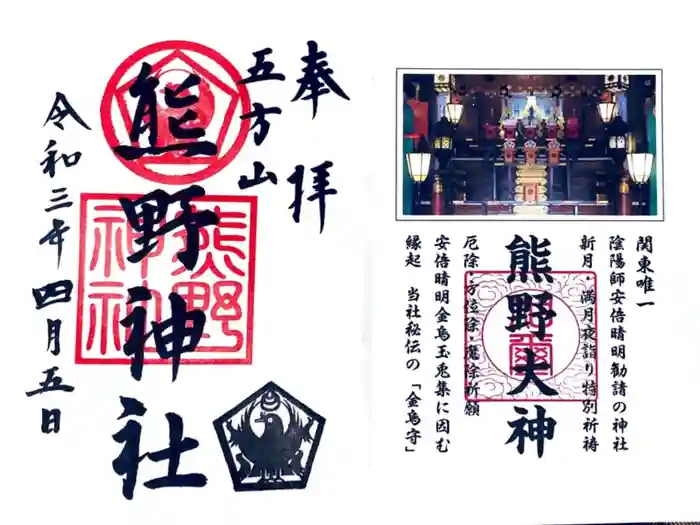 奉拝
五方山
熊野神社
令和三年四月五日
熊野
神社
関東唯一
陰陽師安倍晴明勧請の神社
新月・満月夜詣り特別祈祷
熊野大神
厄除・方位除・魔除祈願
安倍晴明金烏玉兎集に因む
縁起　当社秘伝の「金烏守」